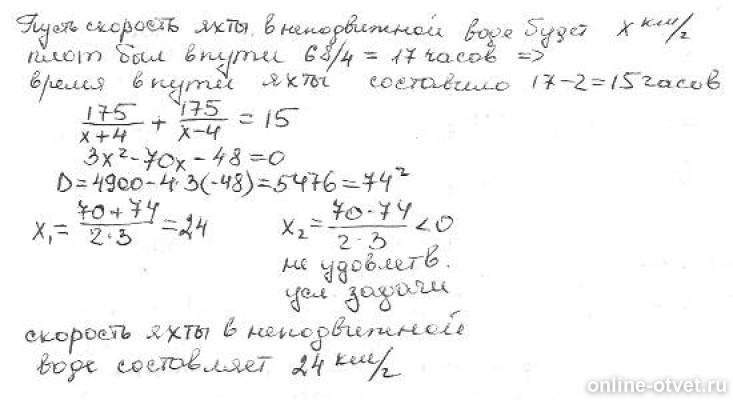 Пусть скорость яхты в неподвижной воде будет x км/г
плот был в пути 68/4 = 17 часов =>
время в пути яхты составило 17-2=15 часов
175/(x+4) + 175/(x-4) = 15
3x²-70x-48=0
D=4900-4·3(-48)=5476=74²
x₁=(70+74)/(2·3)=24 x₂=(70-74)/(2·3)<0
не удовлетв.
усл задачи
скорость яхты в неподвижной
воде составляет 24 км/г
online-otvet.ru